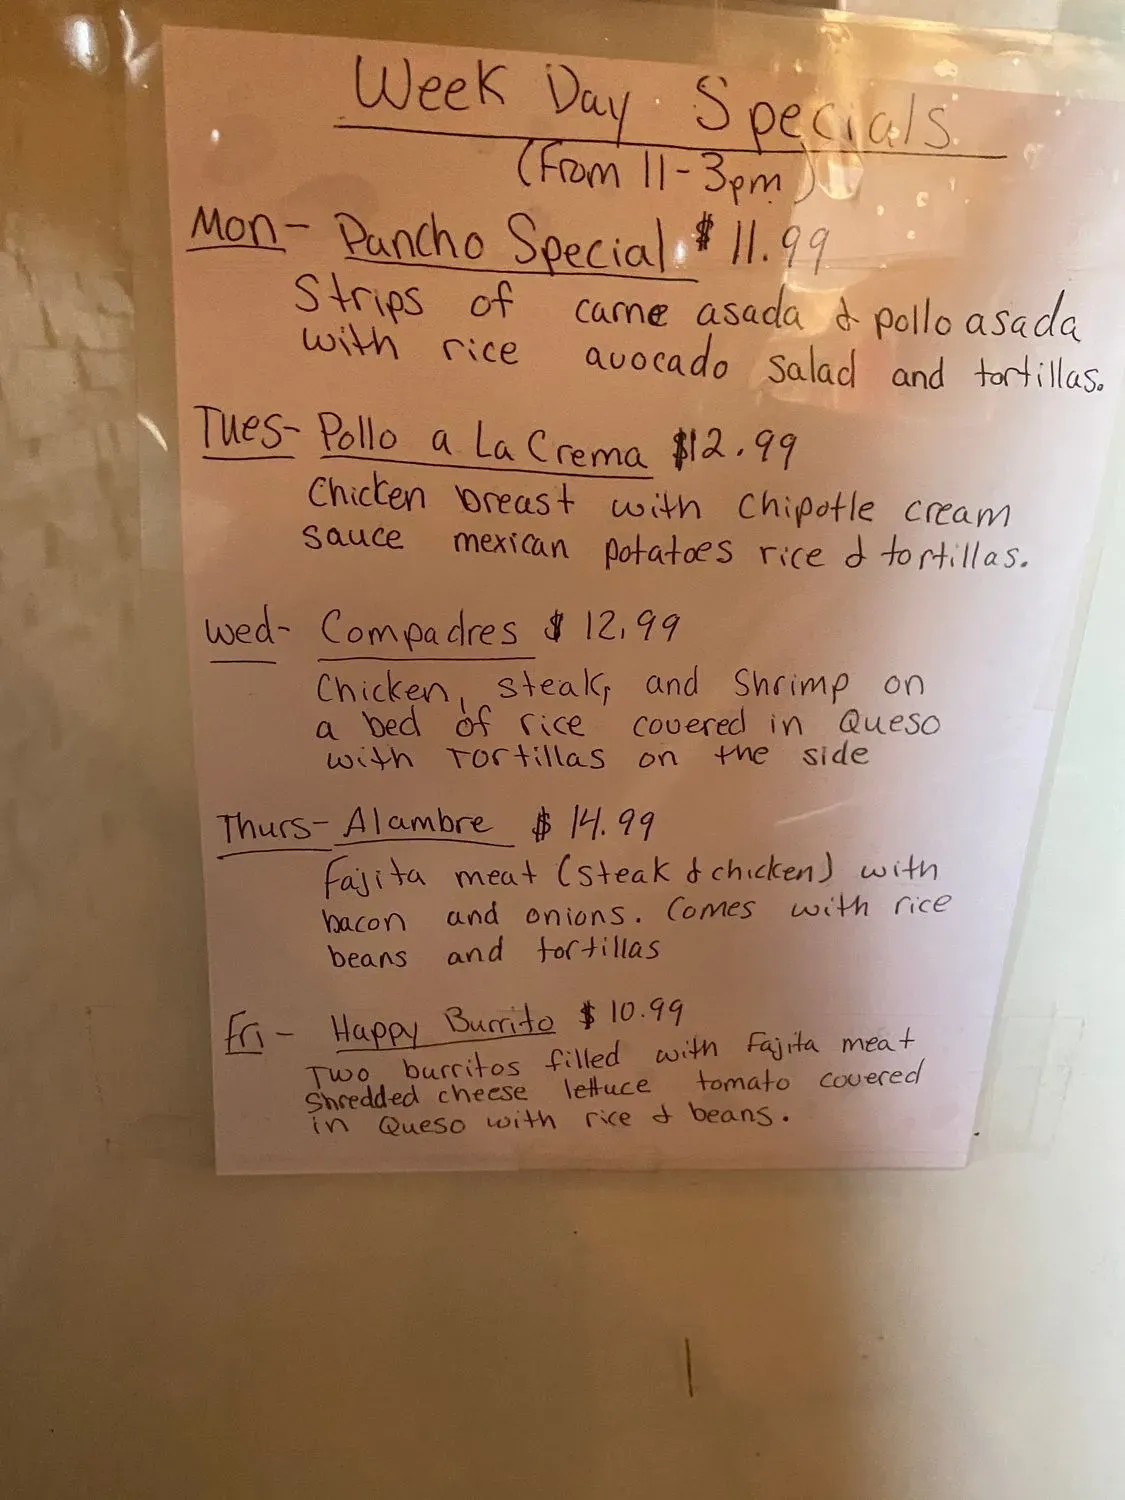 Week Day Specials
(From 11-3pm)
Mon- Pancho Special $11.99
Strips of carne asada & pollo asada
with rice avocado salad and tortillas.
Tues- Pollo a La Crema $12.99
Chicken breast with Chipotle cream
sauce mexican potatoes rice & tortillas.
Wed- Compadres $12.99
Chicken, steak, and Shrimp on
a bed of rice covered in Queso
with Tortillas on the side
Thurs- Alambre $14.99
Fajita meat (steak & chicken) with
bacon and onions. Comes with rice
beans and tortillas
Fri- Happy Burrito $10.99
Two burritos filled with Fajita meat
Shredded cheese lettuce tomato covered
in Queso with rice & beans.